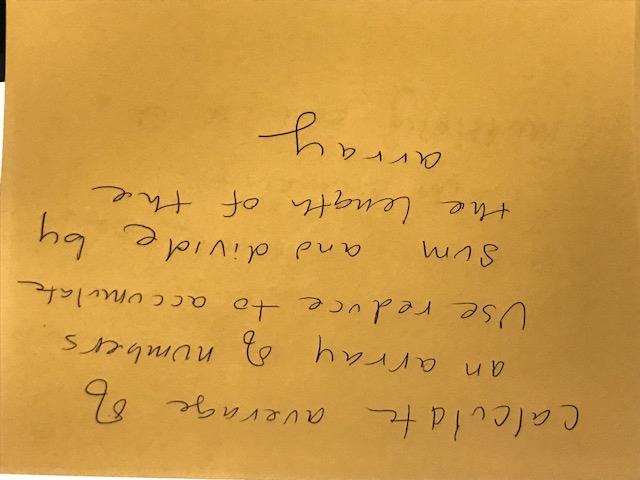 calculate average of
an array of numbers.
Use reduce to accumulate
sum and divide by
the length of the
array